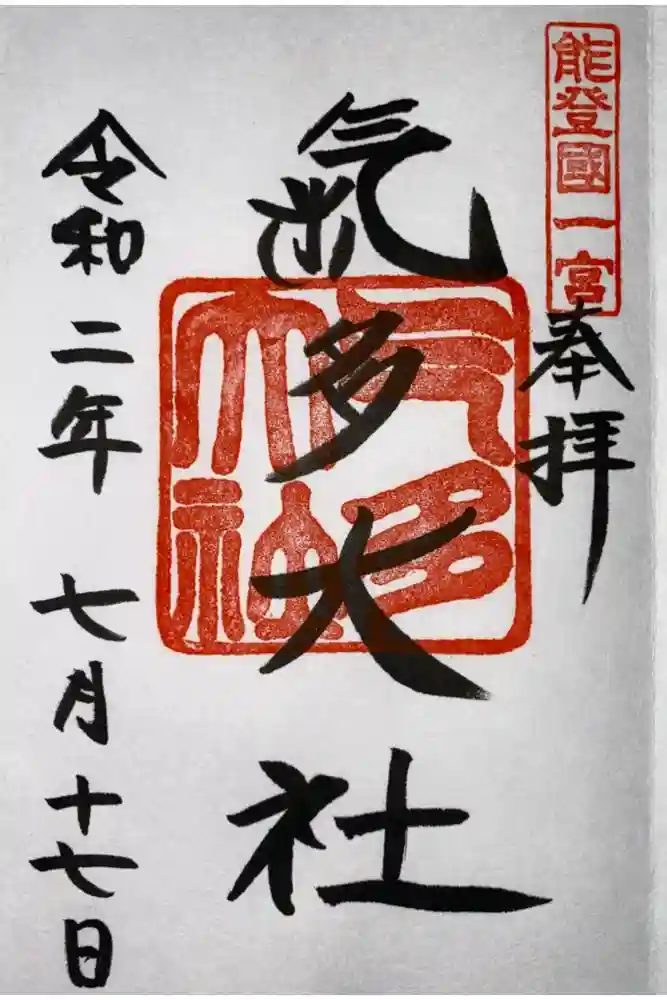 能登國一宮
奉拝
氣多大社
气多大社
令和二年七月十七日